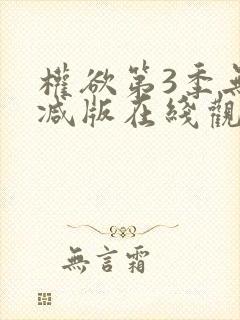 權欲第3季無
减版在綫觀
無言霜